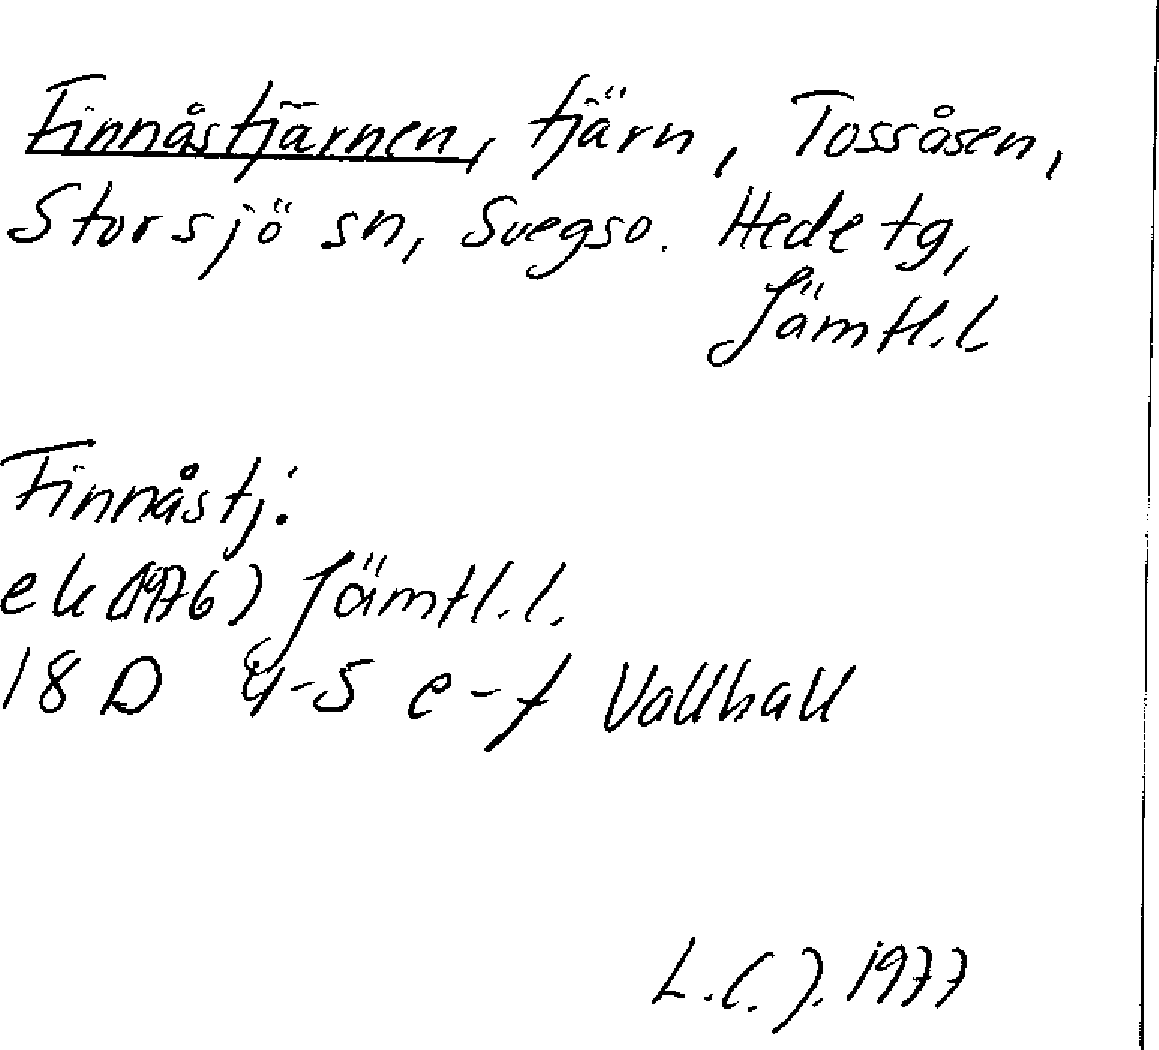 Finnåstjärnen, tjärn, Tossåsen,
Storsjö sn, Svegso. Hede tg,
Jämtl.l.
Finnåstj:
ek (1976) Jämtl.l.
18 D 4-5 e-f Vallhall
L.C.J. 1977